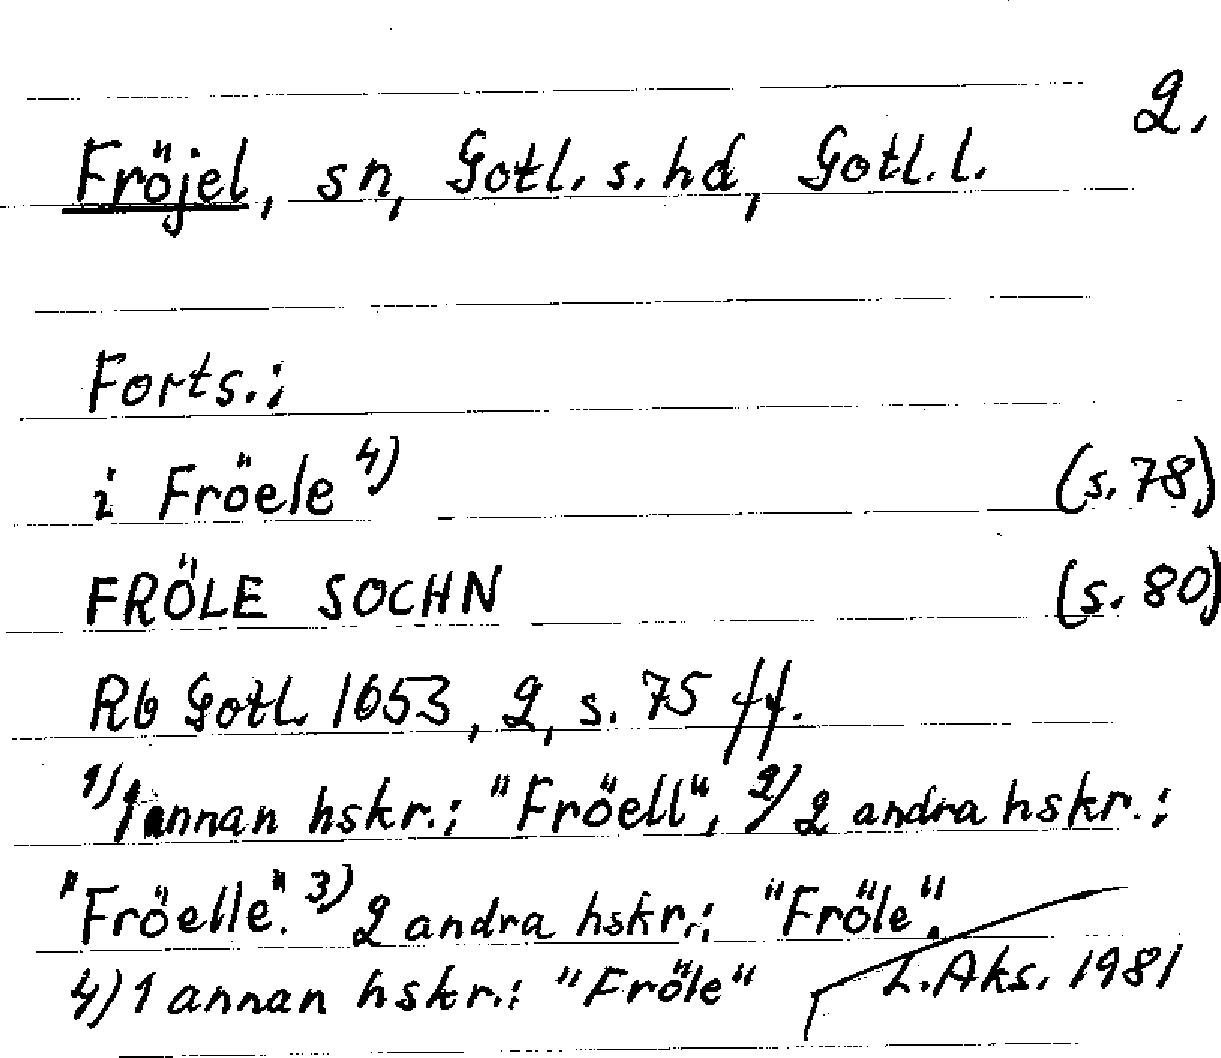 2.
Fröjel, sn, Gotl. s. hd, Gotl. l.
Forts.:
i Fröele 4) (s. 78)
FRÖLE SOCHN (s. 80)
Rb Gotl. 1653, 2, s. 75 ff.
1) 1 annan hskr.: "Fröell", 2) 2 andra hskr.:
"Fröelle". 3) 2 andra hskr.: "Fröle".
4) 1 annan hskr.: "Fröle" L. Aks. 1981